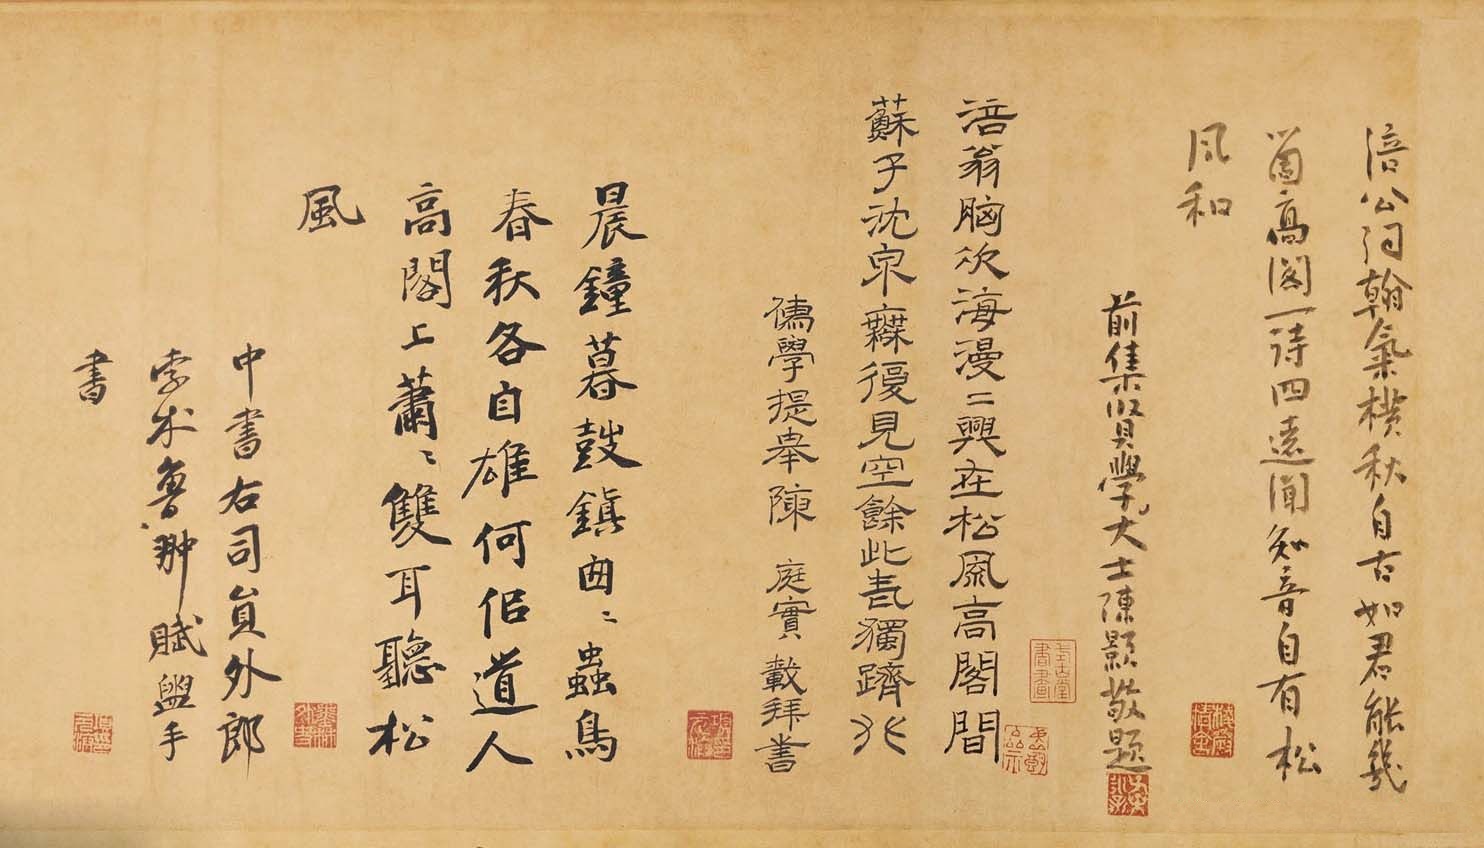 涪公詞翰氣橫秋自古如君能幾
箇高閣一詩四遠聞知音自有松
風和
前集賢學士陳顥敬題
涪翁胸次海漫〻興在松風高閣間
蘇子沈泉無復見空餘此老獨躋
儒學提舉陳庭實載拜書
晨鐘暮鼓鎮匈〻蟲鳥
春秋各自雄何侣道人
高閣上蕭〻雙耳聽松
風
中書右司員外郎
孛朮魯翀賦盥手
書